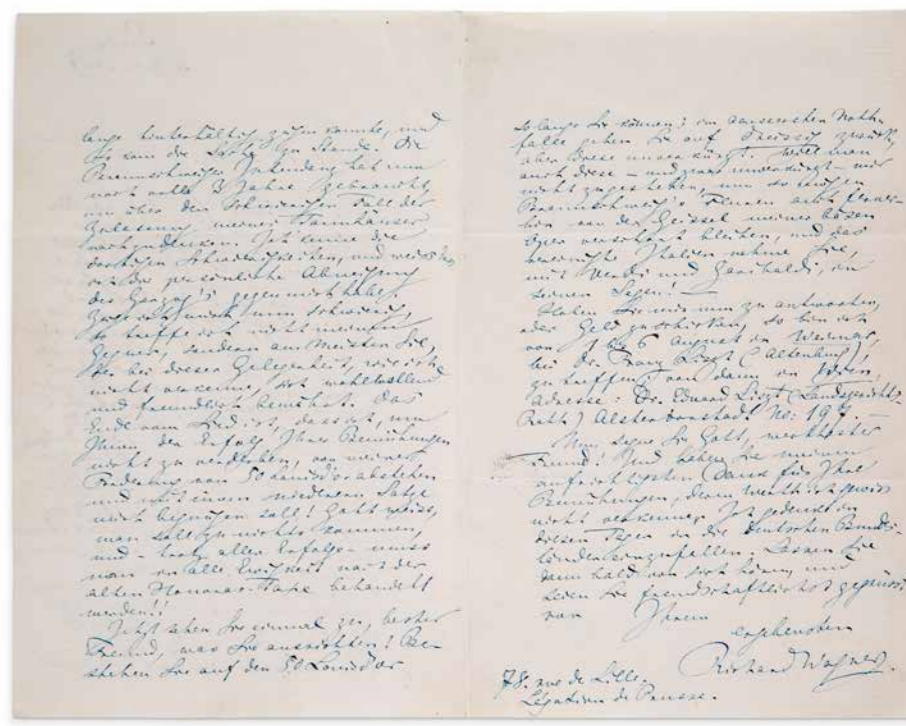 lange hinterhältig zögern konnte, und
so kam die Sache zu Stande. Die
Braunschweiger Intendanz hat nun
noch volle 3 Jahre gebraucht,
um über den schwierigen Fall der
Zulassung meines Tannhäuser
nachzudenken. Ich kenne die
dortigen Schwierigkeiten, und weiss dass
der Herzog's gegen mich habe.
Zeige ich mich nun schwierig,
so treffe ich nicht meinen
Gegner, sondern am Meisten Sie,
der bei dieser Gelegenheit, wie ich
nicht verkenne, sich wohlwollend
und freundlich bemüht. Das
Ende vom Lied ist, dass ich, um
Ihnen den Erfolg Ihrer Bemühungen
nicht zu verderben, von meiner
Forderung von 50 Louisd'or abstehen
und mit einem niederern Satze
mich begnügen soll! Gott weiss,
man soll zu nichts kommen,
und – trotz aller Erfolge – muss
man in alle Ewigkeit nach der
alten Honorar-Taxe behandelt
werden!!
Jetzt sehen Sie einmal zu, bester
Freund, was Sie ausrichten! Be-
stehen Sie auf den 50 Louisdor
so lange Sie können; im äussersten Noth-
falle gehen Sie auf Dreissig zurück,
aber diese unverkürzt. Will man
auch diese – und zwar unverkürzt – mir
nicht zugestehen, nun so mögen
Braunschweig's Tennen auch ferner-
hin von der Geissel meiner bösen
Oper verschont bleiben, und das
Italien nehme Sie,
mit Verdi und Garibaldi, in
seinen Segen! —
Haben Sie mir nun zu antworten,
oder Geld zu schicken, so bin ich
von 1 bis 6 August in Weimar,
bei Dr. Franz Liszt (Altenburg)
zu treffen; von dann in Wien,
Adresse: Dr. Eduard Liszt (Landgerichts-
Rath) Alstervorstadt No: 197. —
Nun segne Sie Gott, werthester
Freund! Und haben Sie meinen
aufrichtigsten Dank für Ihre
Bemühungen, deren Werth ich gewiss
nicht verkenne. Ich gedenke in
diesen Tagen in die deutschen Bundes-
lande einzufallen. Lassen Sie
dann bald von sich hören, und
seien Sie freundschaftlichst gegrüsst
von Ihrem
ergebensten
Richard Wagner.
78. rue de Lille.
Légation de Prusse.